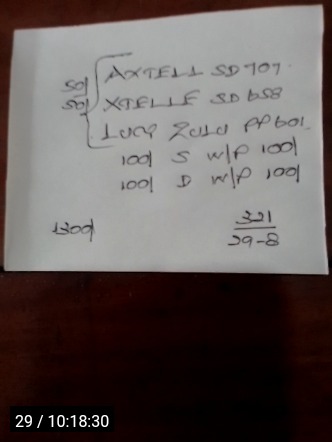 50/ AXTELL SD 707.
50/ XTELLE SD 658
LUCY ZULU PP 601.
100/ S W/P 100/
100/ D W/P 100/
1300/
321
29-8
29 / 10:18:30